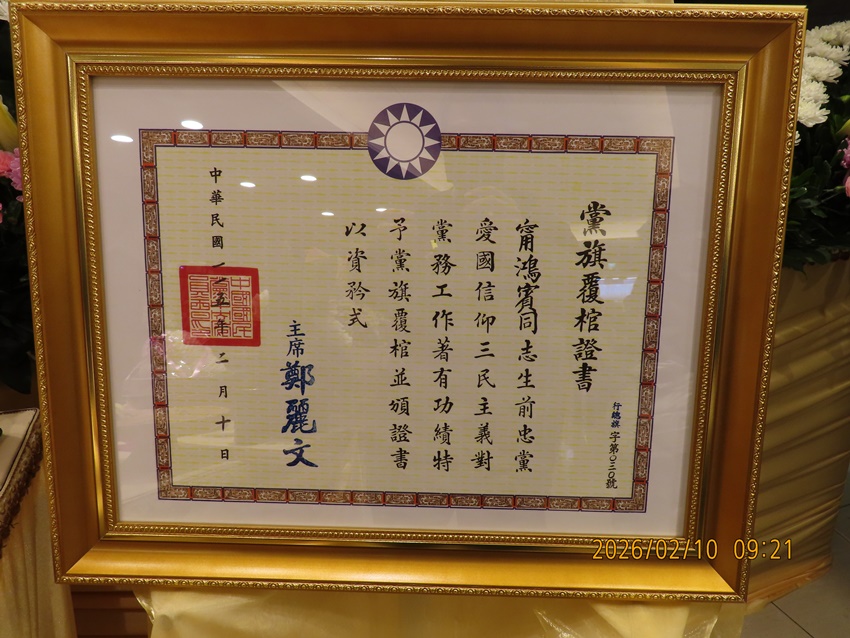 黨旗覆棺證書
行總旗字第〇三〇號
甯鴻賓同志生前忠黨
愛國信仰三民主義對
黨務工作著有功績特
予黨旗覆棺並頒證書
以資矜式
主席鄭麗文
中華民國一一五年二月十日
2026/02/10 09:21